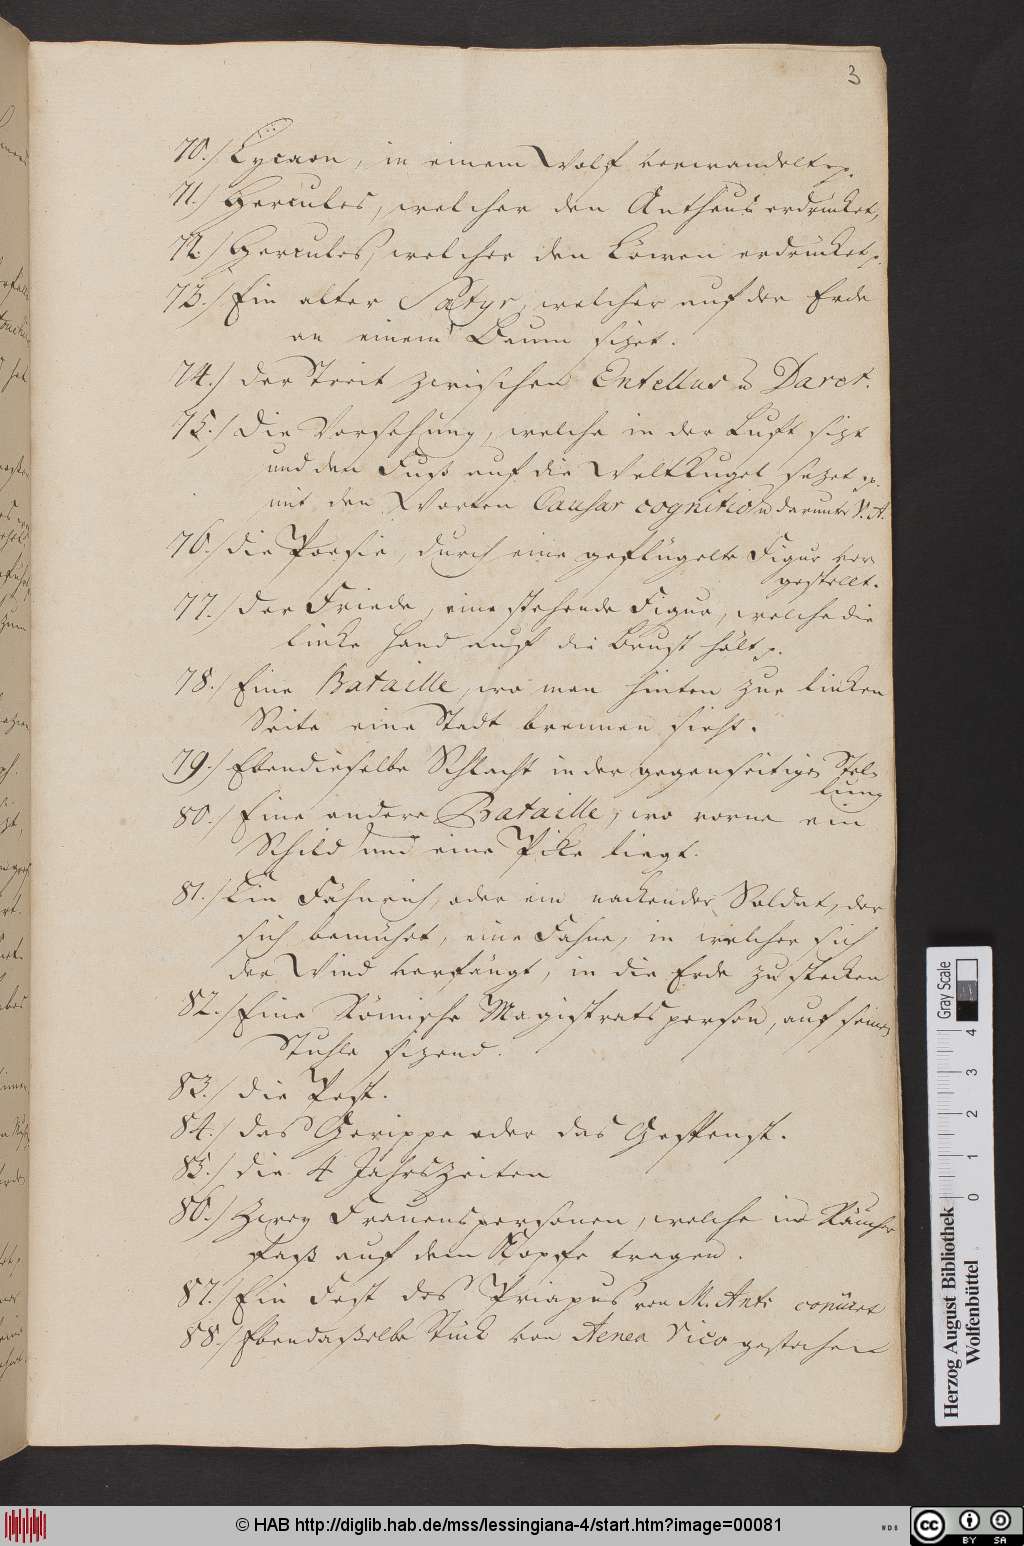 3
70./ Lÿcaon, in einem Wolf verwandelt p.
71./ Hercules, welcher den Antheus erdrücket,
72./ Hercules, welcher den Löwen erdrücket p.
73./ Ein alter Satyr, welcher auf der Erde
an einem Baum sizet.
74./ der Streit zwischen Entellus u Daret.
75./ Die Vorsehung, welche in der Luft sizt
und den Fuß auf die Weltkugel sezet p.
mit den Worten Causar cognitio u darunter V. A.
76./ die Poesie, durch eine geflügelte Figur vor
gestellt.
77./ der Friede, eine stehende Figur, welche die
linke Hand auf die Brust hält p.
78./ Eine Bataille, wo man hinten zur linken
Seite eine Stadt brennen sieht.
79./ Ebendieselbe Schlacht in der gegenseitigen Stel
lung
80./ Eine andere Bataille, wo vorne ein
Schild und eine Pike liegt.
81./ Ein Fähnrich, oder ein nackender Soldat, der
sich bemühet, eine Fahne, in welcher sich
der Wind verfängt, in die Erde zu stecken
82./ Eine Römische Magistratsperson, auf seinem
Stuhle sizend.
83./ die Pest.
84./ das Gerippe oder das Gespenst.
85./ die 4 Jahrszeiten
86./ Zwey Frauenspersonen, welche ein Räucher
Faß auf dem Kopfe tragen.
87./ Ein Fest des Priapus von M. Ant: copiiret
88./ Ebendaßelbe Stück von Aenea Vico gestochen
Gray Scale
0 1 2 3 4
Herzog August Bibliothek
Wolfenbüttel
© HAB http://diglib.hab.de/mss/lessingiana-4/start.htm?image=00081
cc BY SA